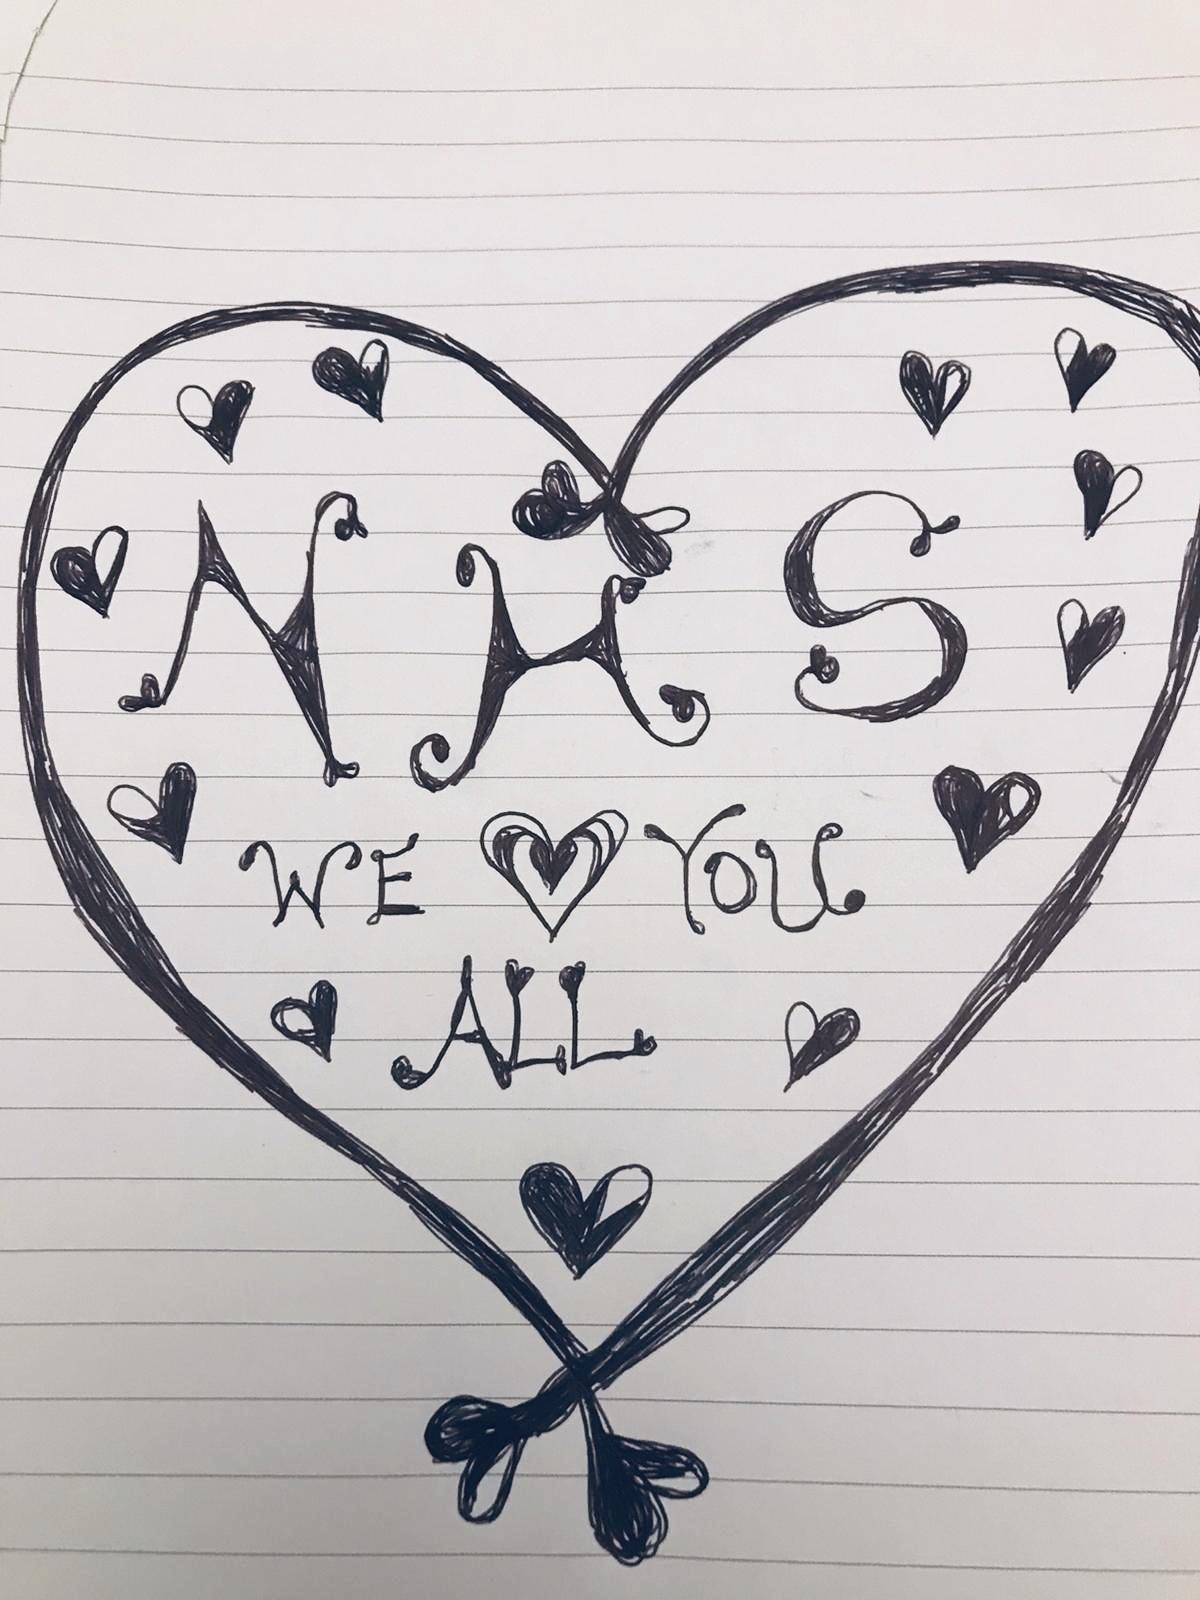 NHS
WE ♥ YOU
ALL